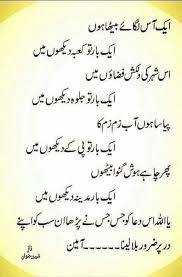 ایک آس لگائے بیٹھا ہوں
ایک بار تو کعبہ دیکھوں میں
اس شہر کی دلکش فضاؤں میں
ایک بار تو جلوہ دیکھوں میں
پیاسا ہوں آب زم زم کا
ایک بار تو پی کے دیکھوں میں
پھر چاہے ہوش گنوا بیٹھوں
ایک بار مدینہ دیکھوں میں
یا اللہ اس دعا کو جس جس نے پڑھا ان سب کو اپنے
در پر ضرور بلا لینا۔۔۔۔۔۔آمین